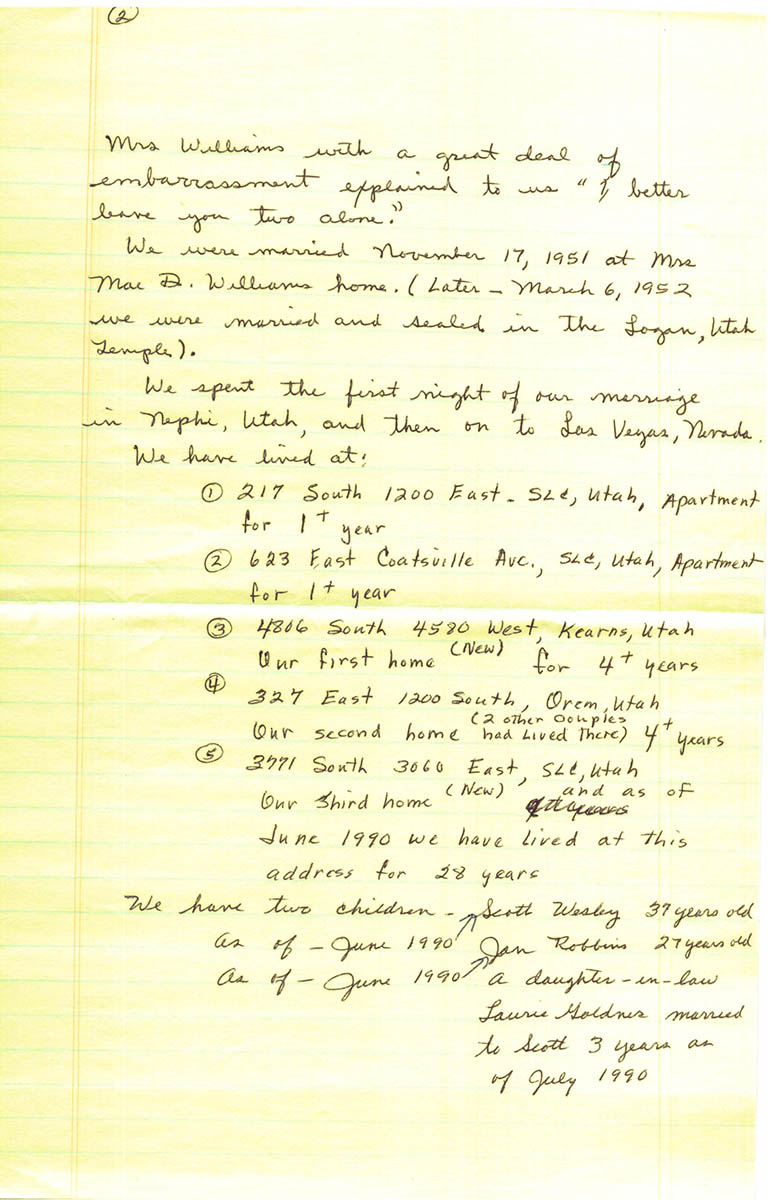 ②
Mrs Williams with a great deal of
embarrassment explained to us "I better
leave you two alone."
We were married November 17, 1951 at Mrs
Mae D. Williams home. (Later - March 6, 1952
we were married and sealed in the Logan, Utah
Temple).
We spent the first night of our marriage
in Nephi, Utah, and then on to Las Vegas, Nevada.
We have lived at:
① 217 South 1200 East - SLC, Utah, Apartment
for 1+ year
② 623 East Coatsville Ave., SLC, Utah, Apartment
for 1+ year
③ 4806 South 4580 West, Kearns, Utah
Our first home (New) for 4+ years
④ 327 East 1200 South, Orem, Utah
Our second home (2 other Couples had Lived There) 4+ years
⑤ 3771 South 3060 East, SLC, Utah
Our third home (New) and as of
June 1990 we have lived at this
address for 28 years
We have two children - Scott Wesley 37 years old
As of - June 1990 Jan Robbins 27 years old
As of - June 1990 A daughter-in-law
Laurie Goldner married
to Scott 3 years as
of July 1990